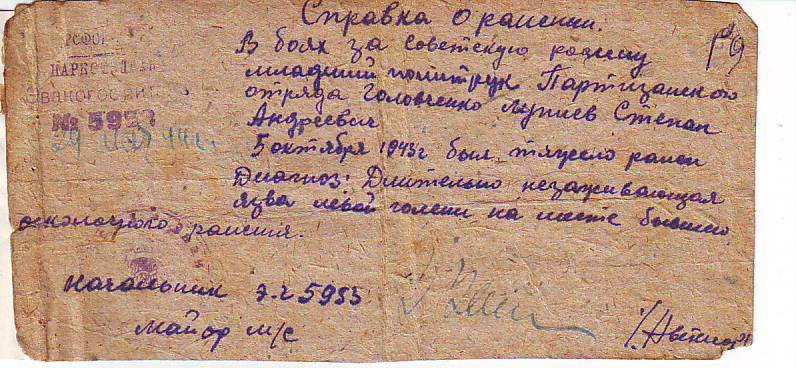 Справка о ранении.
РСФСР
НАРКОМЗДРАВ
Эвакогоспиталь
№ 5953
29 мая 44 г.
В боях за советскую родину
младший политрук Партизанского
отряда Головченко Степан
Андреевич
5 октября 1943 г был тяжело ранен
Диагноз: Длительно незаживающая
язва левой голени на месте бывшего
осколочного ранения.
начальник э.г 5953
майор м/с